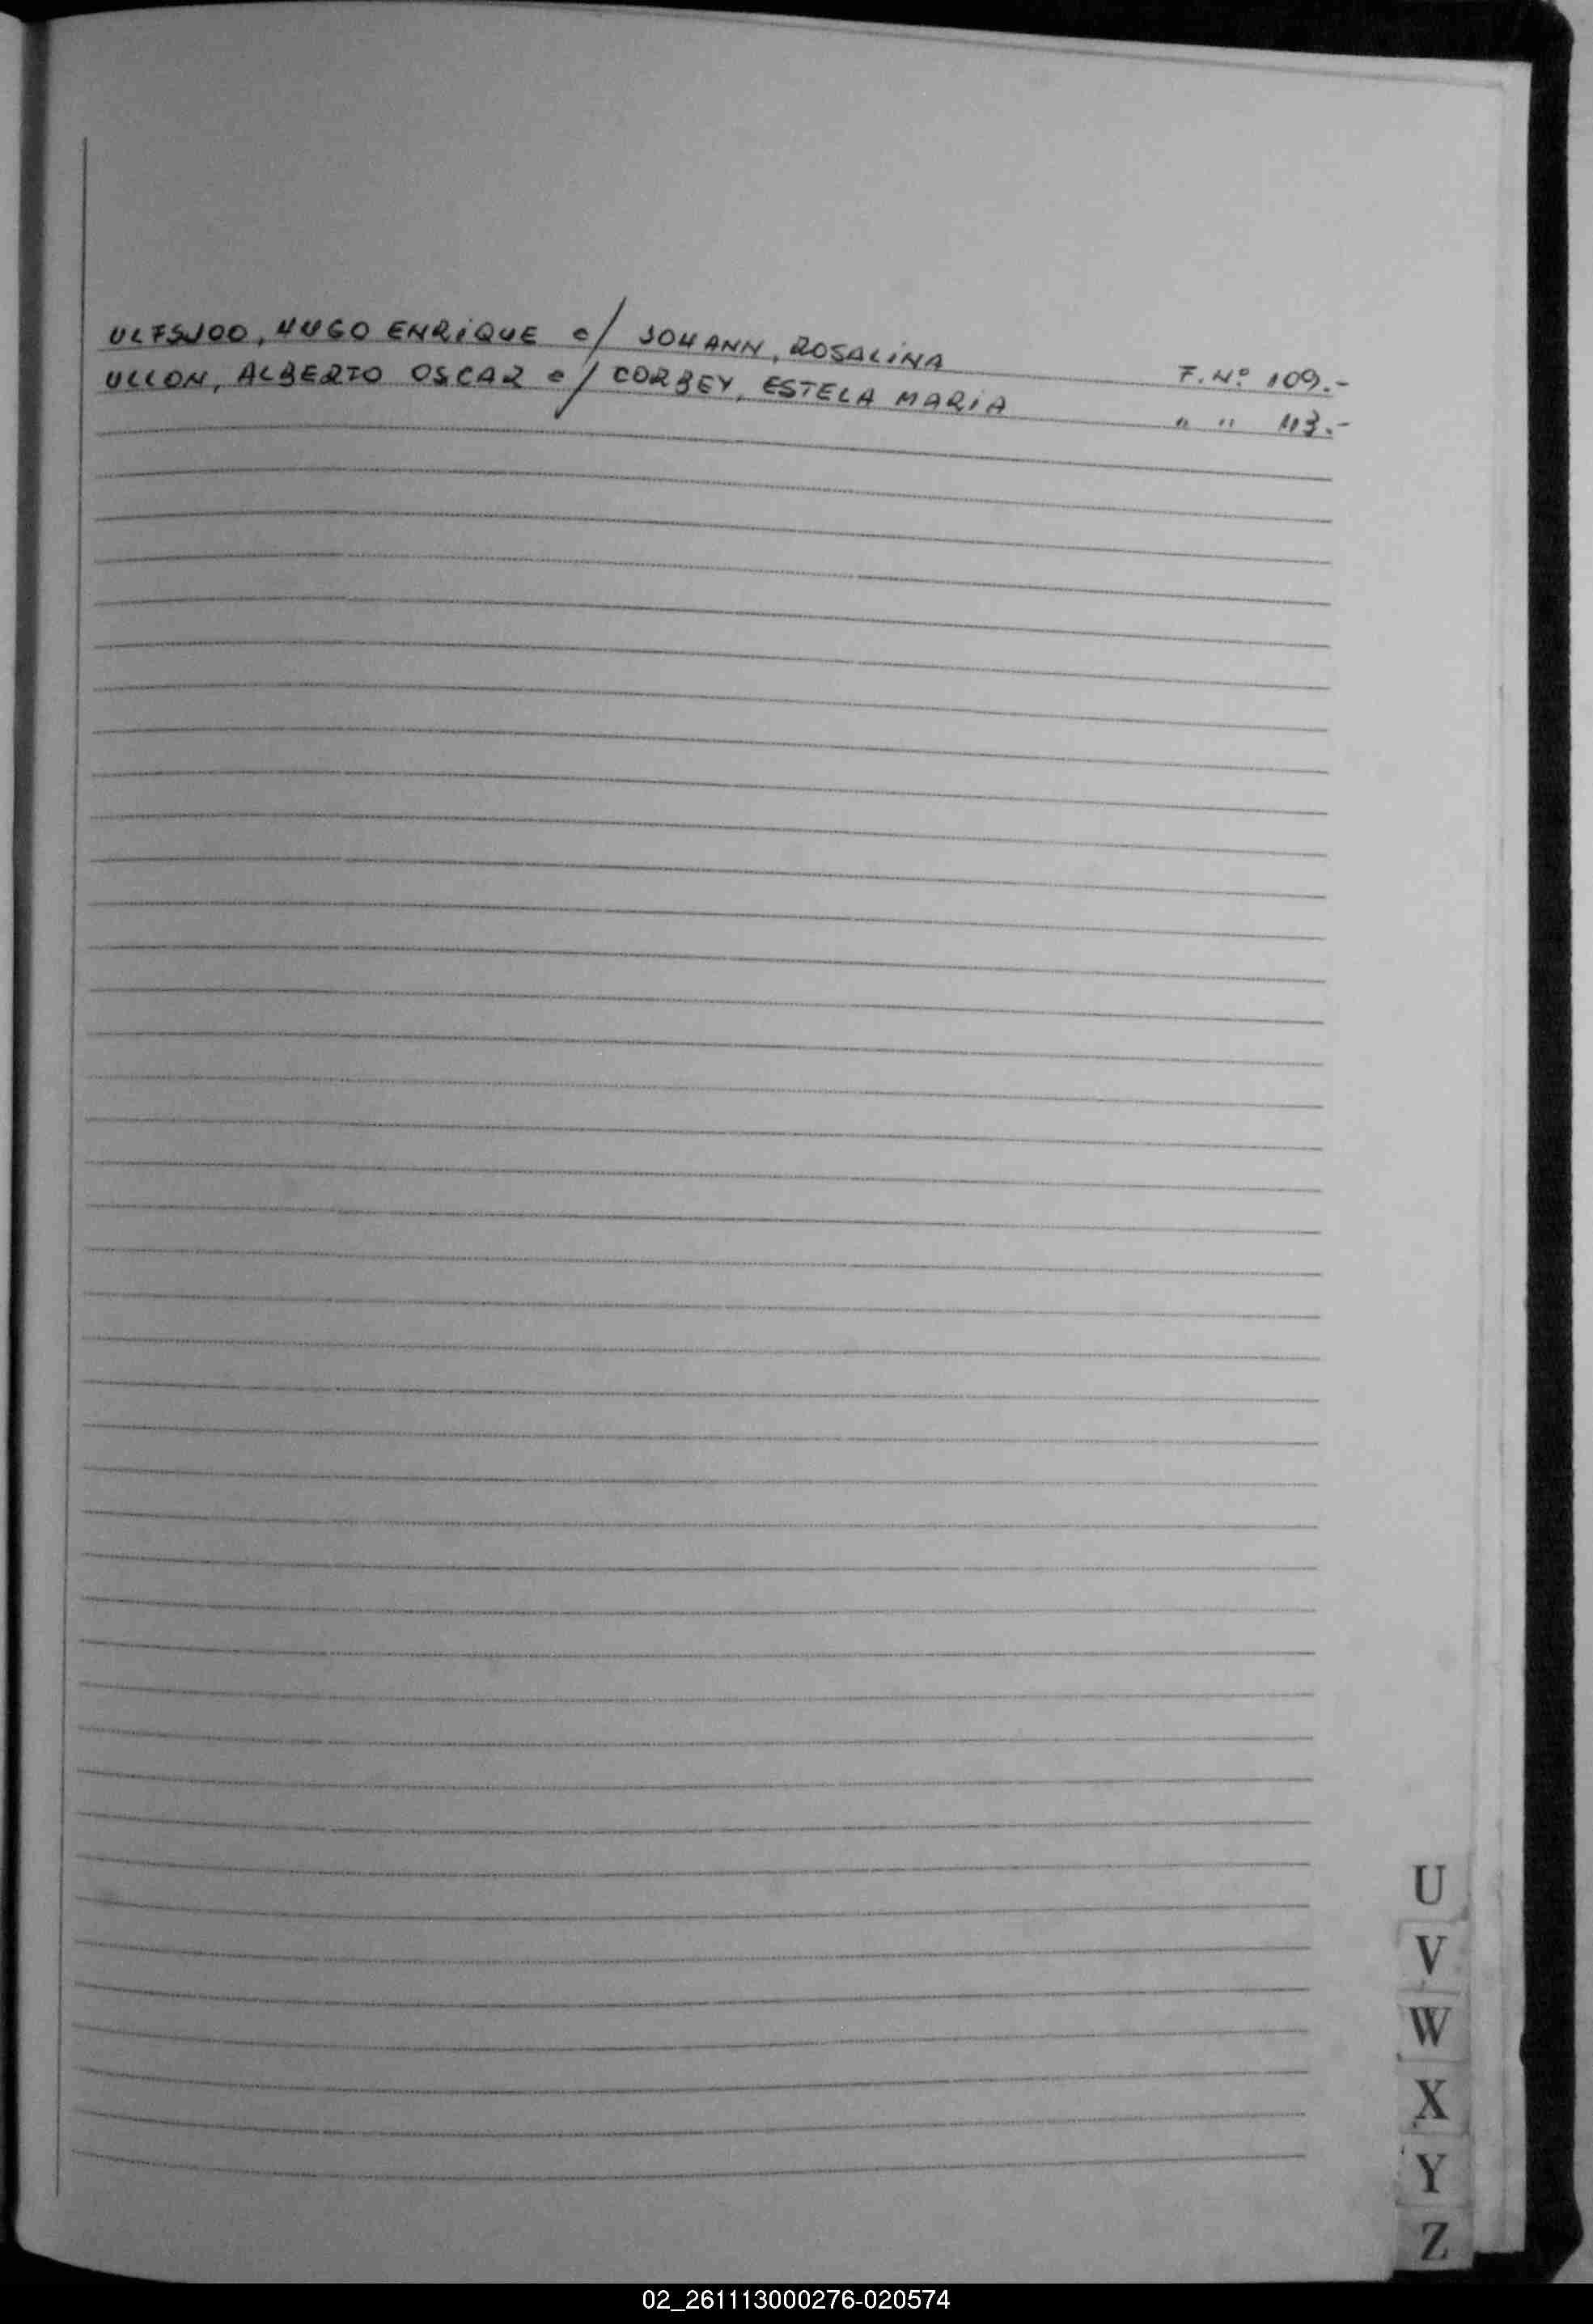 ULFSJOO, HUGO ENRiQUE c/ JOHANN, ROSALiNA F. Nº 109.-
ULLON, ALBERTO OSCAR c/ CORBEY, ESTELA MARiA " " 113.-
U
V
W
X
Y
Z
02_261113000276-020574